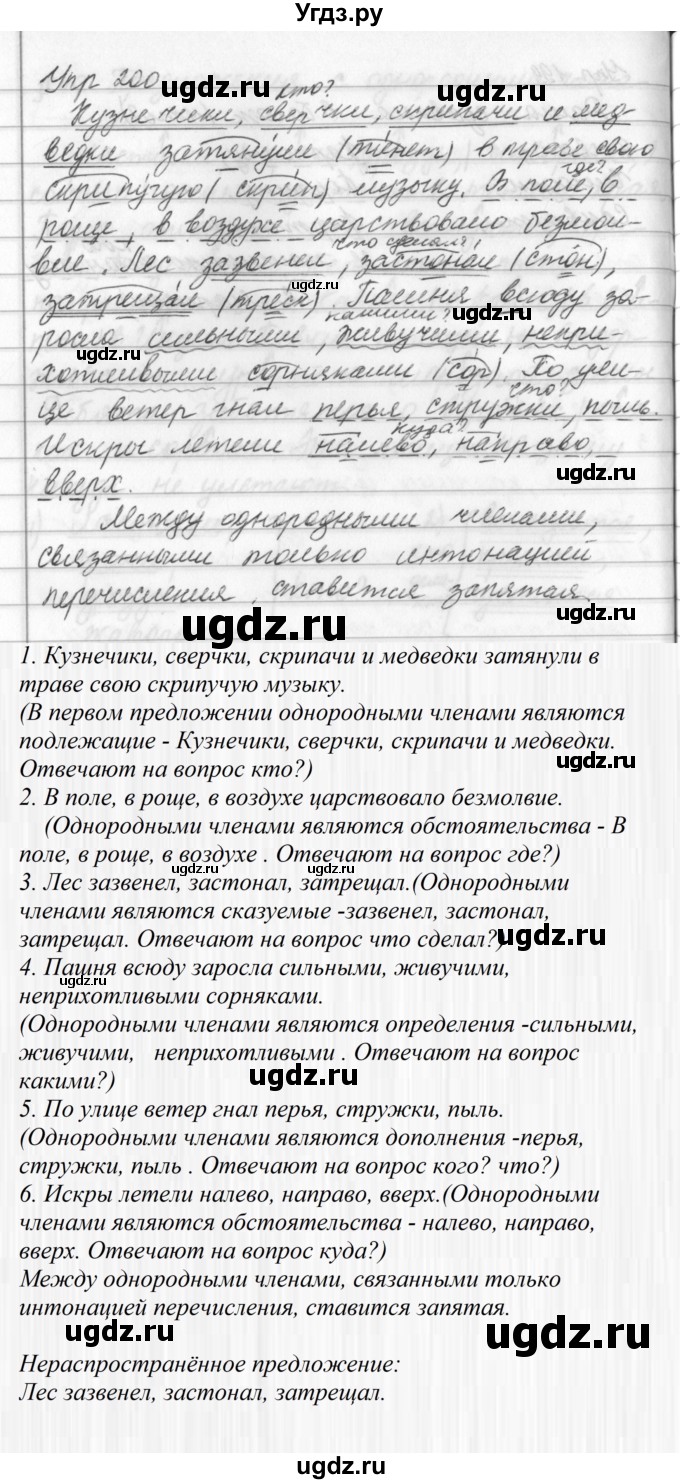 Угдз.ру
Упр 200
кто?
Кузнечики, сверчки, скрипачи и мед-
ведки затянули (тянет) в траве свою
скрипучую (скрип) музыку. В поле, в
где?
роще, в воздухе царствовало безмол-
что сделал?
вие. Лес зазвенел, застонал (стон),
затрещал (треск). Пашня всюду за-
какими?
росла сильными, живучими, непри-
хотливыми сорняками (сор). По ули-
что?
це ветер гнал перья, стружки, пыль.
куда?
Искры летели налево, направо,
вверх.
Между однородными членами,
связанными только интонацией
перечисления, ставится запятая.
1. Кузнечики, сверчки, скрипачи и медведки затянули в
траве свою скрипучую музыку.
(В первом предложении однородными членами являются
подлежащие - Кузнечики, сверчки, скрипачи и медведки.
Отвечают на вопрос кто?)
2. В поле, в роще, в воздухе царствовало безмолвие.
(Однородными членами являются обстоятельства - В
поле, в роще, в воздухе . Отвечают на вопрос где?)
3. Лес зазвенел, застонал, затрещал.(Однородными
членами являются сказуемые -зазвенел, застонал,
затрещал. Отвечают на вопрос что сделал?)
4. Пашня всюду заросла сильными, живучими,
неприхотливыми сорняками.
(Однородными членами являются определения -сильными,
живучими, неприхотливыми . Отвечают на вопрос
какими?)
5. По улице ветер гнал перья, стружки, пыль.
(Однородными членами являются дополнения -перья,
стружки, пыль . Отвечают на вопрос кого? что?)
6. Искры летели налево, направо, вверх.(Однородными
членами являются обстоятельства - налево, направо,
вверх. Отвечают на вопрос куда?)
Между однородными членами, связанными только
интонацией перечисления, ставится запятая.
Нераспространённое предложение:
Лес зазвенел, застонал, затрещал.
ugdz.ru